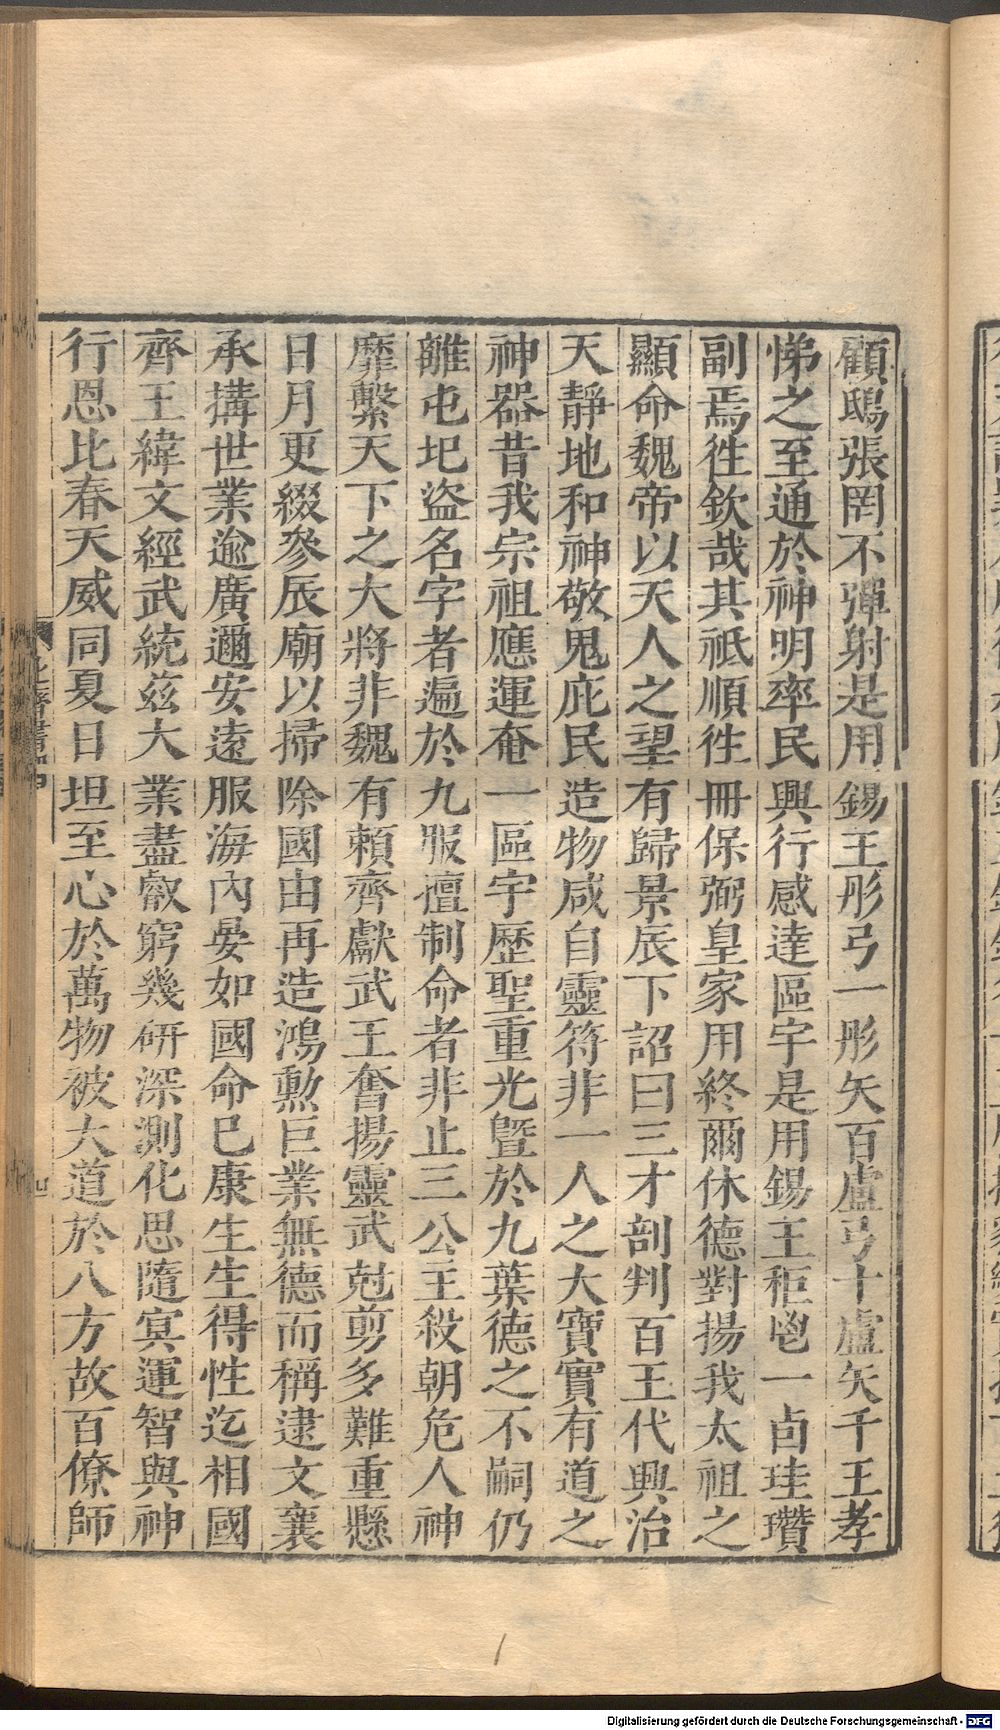 顧鴟張罔不彈射是用錫王彤弓一彤矢百盧弓十盧矢千王孝
悌之至通於神明率民興行感達區宇是用錫王秬鬯一卣珪瓚
副焉徃欽哉其祗順徃冊保弼皇家用終爾休德對揚我太祖之
顯命魏帝以天人之望有歸景辰下詔曰三才剖判百王代興治
天靜地和神敬鬼庇民造物咸自靈符非一人之大寶實有道之
神器昔我宗祖應運奄一區宇歷聖重光曁於九葉德之不嗣仍
離屯圮盜名字者遍於九服擅制命者非止三公主殺朝危人神
靡繫天下之大將非魏有賴齊獻武王奮揚靈武尅剪多難重懸
日月更綴參辰廟以掃除國由再造鴻勲巨業無德而稱逮文襄
承搆世業逾廣邇安遠服海內晏如國命巳康生生得性迄相國
齊王緯文經武統茲大業盡叡窮幾研深測化思隨冥運智與神
行恩比春天威同夏日坦至心於萬物被大道於八方故百僚師
北齊書
四
1
Digitalisierung gefördert durch die Deutsche Forschungsgemeinschaft - DFG